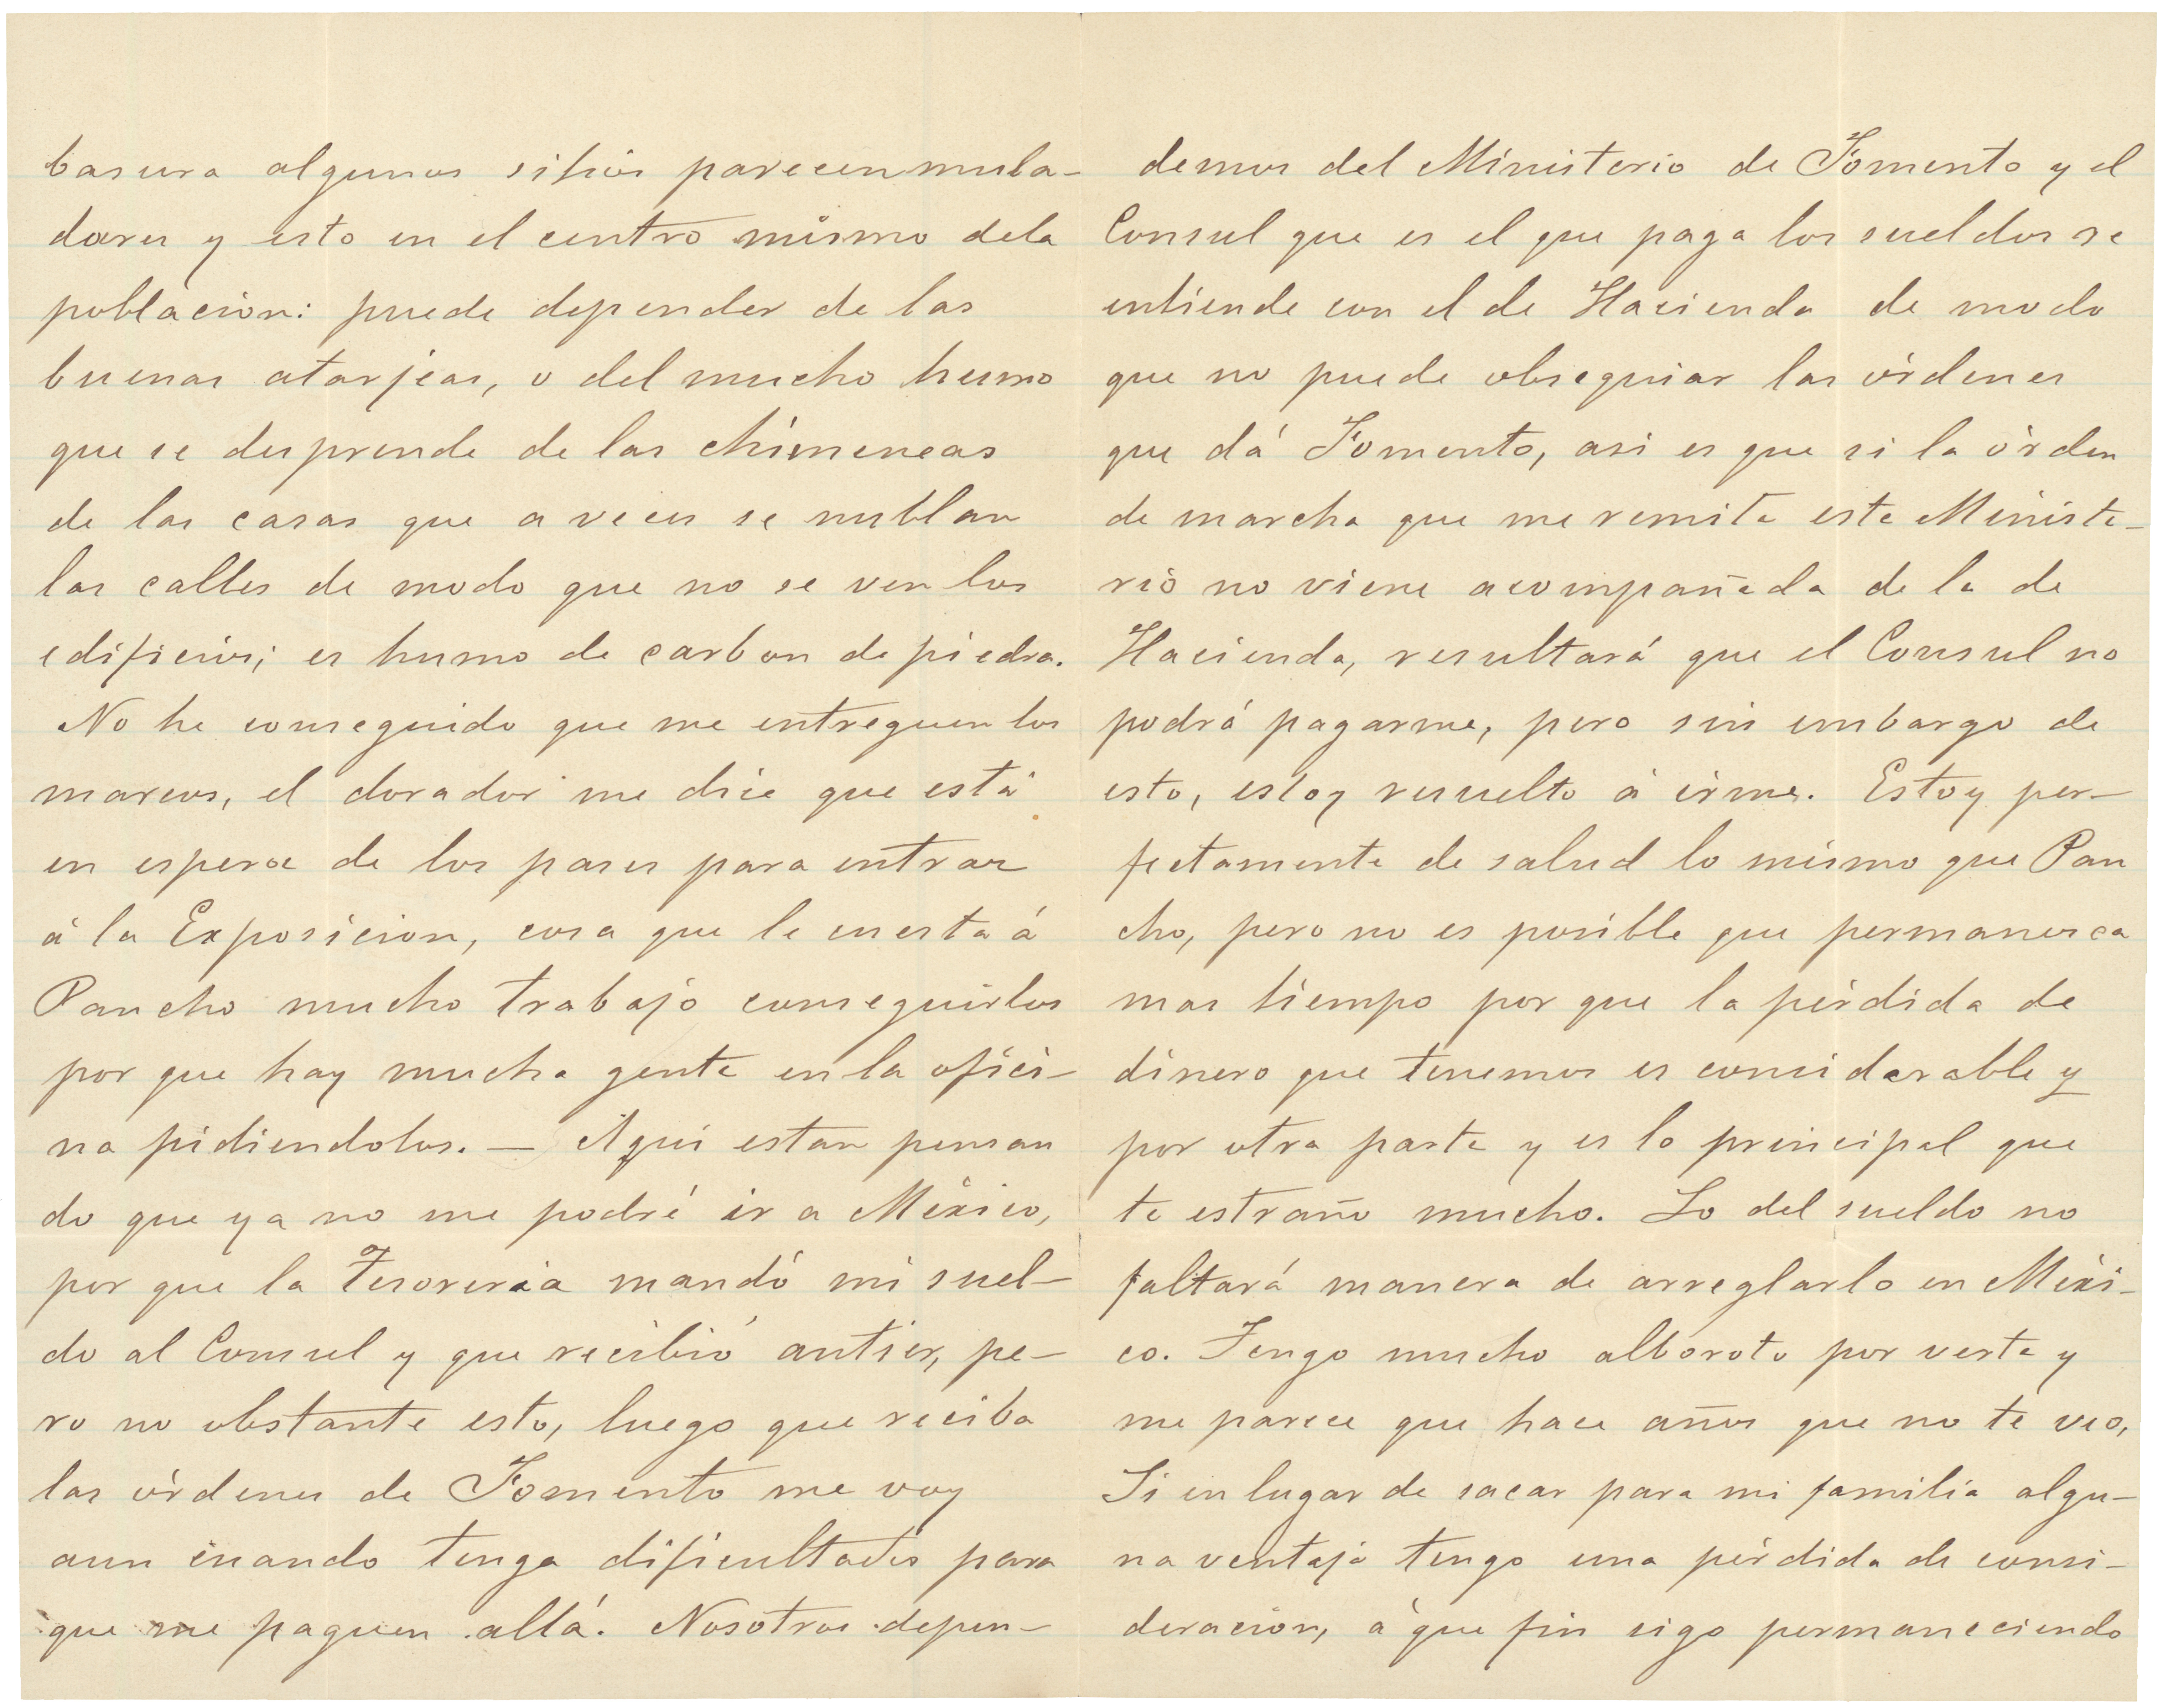 basura algunos sitios parecen mula-
dares y esto en el centro mismo dela
poblacion: puede depender de las
buenas atarjeas, o del mucho humo
que se desprende de las chimeneas
de las casas que a veces se nublan
las calles de modo que no se ven los
edificios; es humo de carbon de piedra.
No he conseguido que me entreguen los
marcos, el dorador me dice que está
en espera de los pases para entrar
á la Exposicion, cosa que le cuesta á
Pancho mucho trabajo conseguirlos
por que hay mucha gente en la ofici-
na pidiendolos. — Aqui estan pensan
do que ya no me podré ir a México,
por que la Tesoreria mandó mi suel-
do al Consul y que recibió antier, pe-
ro no obstante esto, luego que reciba
las órdenes de Fomento me voy
aun cuando tenga dificultades para
que me paguen allá. Nosotros depen-
demos del Ministerio de Fomento y el
Consul que es el que paga los sueldos se
entiende con el de Hacienda de modo
que no puede obsequiar las órdenes
que dá Fomento, asi es que si la órden
de marcha que me remite este Ministe-
rio no viene acompañada de la de
Hacienda, resultará que el Consul no
podrá pagarme, pero sin embargo de
esto, estoy resuelto á irme. Estoy per-
fectamente de salud lo mismo que Pan
cho, pero no es posible que permanesca
mas tiempo por que la pérdida de
dinero que tenemos es considerable y
por otra parte y es lo principal que
te estraño mucho. Lo del sueldo no
faltará manera de arreglarlo en Méxi-
co. Tengo mucho alboroto por verte y
me parece que hace años que no te veo,
Si en lugar de sacar para mi familia algu-
na ventaja tengo una pérdida de consi-
deracion, á que fin sigo permaneciendo